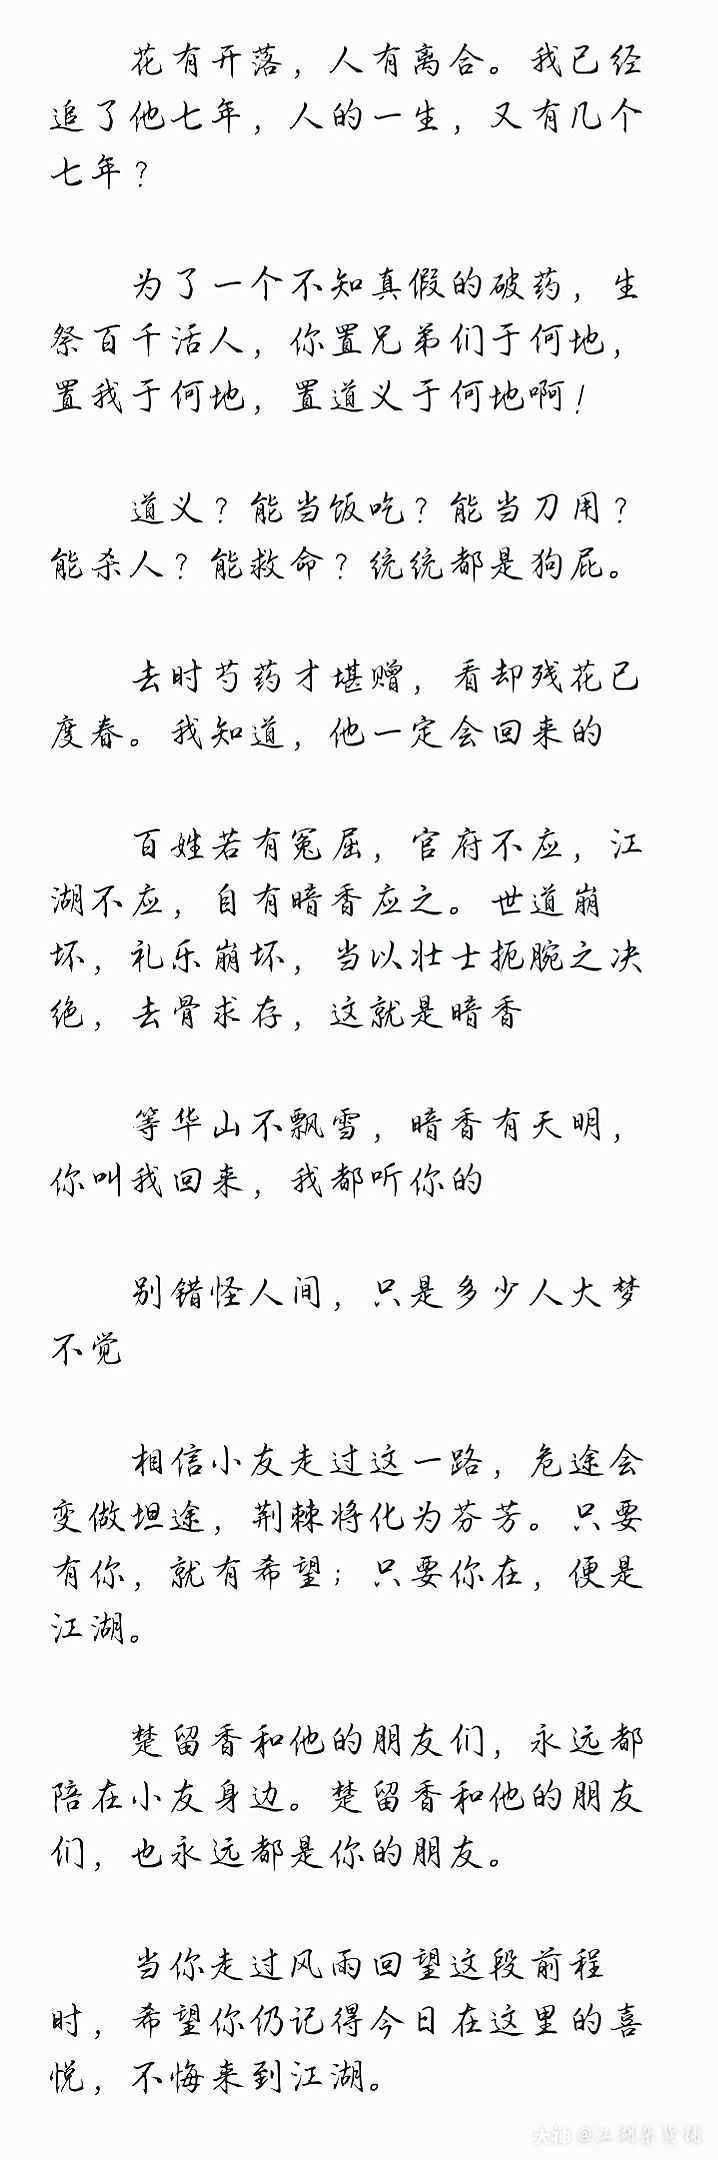 花有开落，人有离合。我已经
追了他七年，人的一生，又有几个
七年？
为了一个不知真假的破药，生
祭百千活人，你置兄弟们于何地，
置我于何地，置道义于何地啊！
道义？能当饭吃？能当刀用？
能杀人？能救命？统统都是狗屁。
去时芍药才堪赠，看却残花已
度春。我知道，他一定会回来的
百姓若有冤屈，官府不应，江
湖不应，自有暗香应之。世道崩
坏，礼乐崩坏，当以壮士扼腕之决
绝，去骨求存，这就是暗香
等华山不飘雪，暗香有天明，
你叫我回来，我都听你的
别错怪人间，只是多少人大梦
不觉
相信小友走过这一路，危途会
变做坦途，荆棘将化为芬芳。只要
有你，就有希望；只要你在，便是
江湖。
楚留香和他的朋友们，永远都
陪在小友身边。楚留香和他的朋友
们，也永远都是你的朋友。
当你走过风雨回望这段前程
时，希望你仍记得今日在这里的喜
悦，不悔来到江湖。
大神@江湖杂货铺